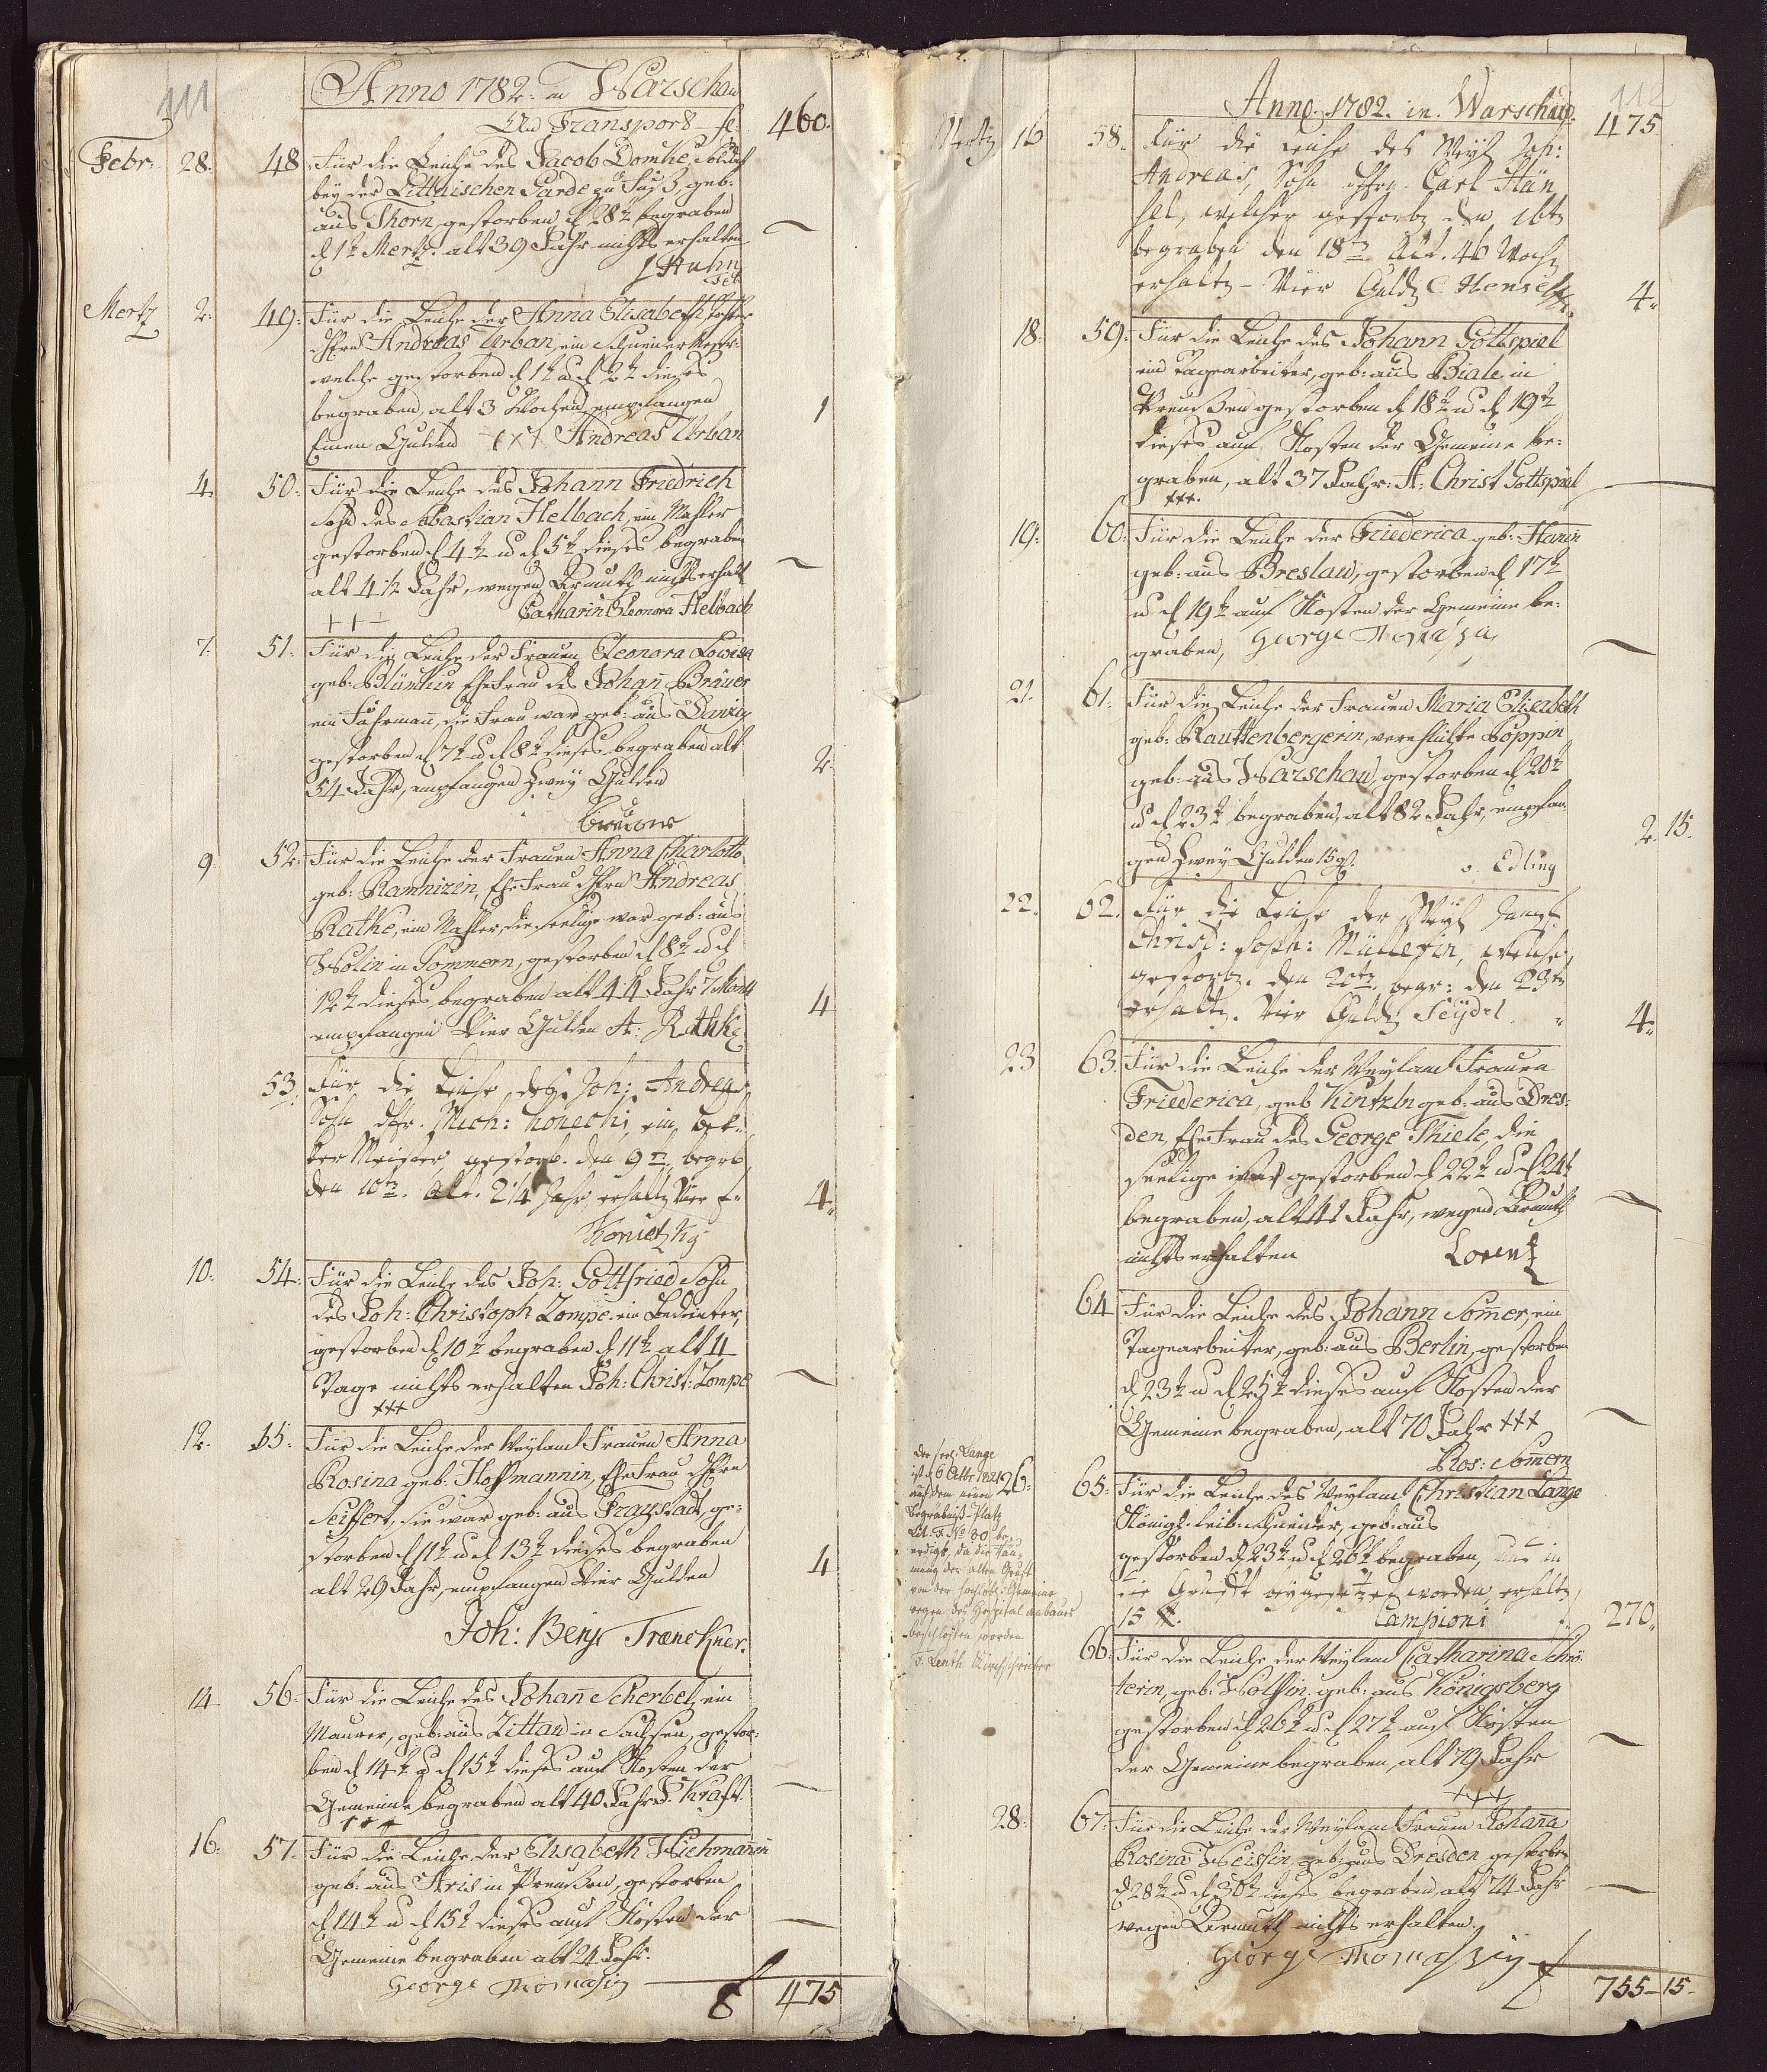 111
Anno 1782. in Warschau
An Transport fl. 460.
Febr: 28. 48 Für die Leiche des Jacob Domke, Soldat
bey der Litthischen Garde zu Fuß, geb:
aus Thorn, gestorben d 28t begraben
d 1t Mertz. alt 39 Jahr nichts erhalten —
J Kuhn
Mertz 2. 49: Für die Leiche der Anna Elisabeth Tochter
dHrn Andreas Urban, ein Schneider
welche gestorben d 1t u d 2t dieses
begraben, alt 3 Wochen, empfangen 1
Einen Gulden +x+ Andreas Urban
4. 50: Für die Leiche des Johann Friedrich
Sohn des Sebastian Helbach, ein Mahler
gestorben d 4t u d 5t dieses begraben
alt 4 1/2 Jahr, wegen Armuth nichts erhalt —
+++ Catharin Eleonora Helbach
7. 51. Für die Leiche der Frauen Eleonora Lowisa
geb: Blümkin Ehefrau des Johan Bräuer
ein Fuhrmann, die Frau war geb: aus Danzig
gestorben d 7t u d 8t dieses begraben alt 2.
54 Jahr, empfangen Zwey Gulden
Breuer
9. 52. Für die Leiche der Frauen Anna Charlotte
geb: Ramnizin, Ehefrau dHrn Andreas
Rathke, ein Mahler, die seelige war geb: aus
Wolin in Pommern, gestorben d 8t u d
12t dieses begraben alt 44 Jahr 7 Monat 4
empfangen Vier Gulden A: Rathke
53. Für die Leiche des Joh: Andreas
Sohn dHr. Mich: Konechi, ein Bek-
ker Meister, gestorb. den 9tn, begrb
den 10tn. Alt. 2 1/4 Jahr, erhaltn Vier f. 4.
Konietzky
10. 54: Für die Leiche des Joh: Gottfried Sohn
des Joh: Christoph Zompe, ein Bedienter,
gestorben d 10t begraben d 11t alt 11
Tage nichts erhalten Joh: Christ: Zompe —
+++
12. 55. Für die Leiche der Weyland Frauen Anna
Rosina geb: Hoffmannin, Ehefrau dHrn
Seiffert, sie war geb: aus Fraustadt, ge-
storben d 11t u d 13t dieses begraben
alt 29 Jahr, empfangen Vier Gulden 4
Joh: Benj Trenckner.
14 56. Für die Leiche des Johan Scherbel, ein
Maurer, geb: aus Zittau in Sachsen, gestor-
ben d 14t u d 15t dieses auf Kosten der
Gemeinde begraben alt 40 Jahr F. Kraft. —
+++
16. 57. Für die Leiche der Elisabeth Wichmannin
geb: aus Aris in Preußen, gestorben
d 14t u d 15t dieses auf Kosten der
Gemeine begraben alt 24 Jahr. —
George Thomasin
f 475
112
Anno. 1782. in. Warschau.
475
Mertz 16 58. Für die Leiche des Weyl Joh:
Andreas, Sohn dHrn. Carl Hän
sel, welcher gestorb den 16tn
begraben den 18tn Alt. 46 Woch
erhaltn - Vier Guldn C Hensel 4.
18. 59. Für die Leiche des Johann Gottspiel
ein Tagearbeiter, geb: aus Biale in
Preußen gestorben d 18t u d 19t
dieses auf Kosten der Gemeine be-
graben, alt 37 Jahr: A: Christ Gottspiel —
+++.
19. 60. Für die Leiche der Friederica geb: Hanin
geb: aus Breslau, gestorben d 17t
u d 19t auf Kosten der Gemeine be-
graben, George Thomasin —
21. 61. Für die Leiche der Frauen Maria Elisabeth
geb: Rauttenbergerin, verehlichte Poppin
geb: aus Warschau, gestorben d 20t
u d 23t begraben, alt 82 Jahr, empfan-
gen Zwey Gulden 15 gl. v. Edling 2. 15.
22. 62. Für die Leiche der Weyl Jungf.
Christ: Soph: Müllerin, welche
gestorb. den 20tn. begr: den 23tn
erhaltn. Vier Guldn Seydel. 4.
23 63. Für die Leiche der Weyland Frauen
Friederica, geb Kintzln geb: aus Dres-
den, Ehefrau des George Thiele, die
seelige ist gestorben d 22t u d 24t
begraben, alt 41 Jahr, wegen Armuth —
nichts erhalten Lorentz
64 Für die Leiche des Johann Somer, ein
Tagearbeiter, geb: aus Berlin, gestorben
d 23t u d 25t dieses auf Kosten der
Gemeine begraben, alt 70 Jahr +++ —
Ros: Somern
Der seel. Lange
ist d 6 Octbr 1821
auf dem neuen
Begräbniß-Platz
Lit. F. No 80 be-
erdigt, da die Räu-
mung der alten Gruft
von der hochlöbl. Gemeine
wegen des Hospital anbaues
beschlossen worden
F. Lenth Kirchschreiber
26. 65. Für die Leiche des Weyland Christian Lange
Königl. Leib-Schneider, geb: aus
gestorben d 23t u d 26t begraben, und in
die Grufft beygesetzet worden, erhaltn
15 #. Campioni 270.
66. Für die Leiche der Weyland Catharina Schrö-
terin, geb: Wolffin geb: aus Königsberg
gestorben d 26t u d 27t auf Kosten
der Gemeine begraben, alt 79 Jahr —
+++
28. 67. Für die Leiche der Weyland Frauen Johana
Rosina Weissin, geb: aus Dresden gestorben
d 28t u d 30t dieses begraben alt 74 Jahr —
wegen Armuth nichts erhalten.
George Thomassin
f 755-15-